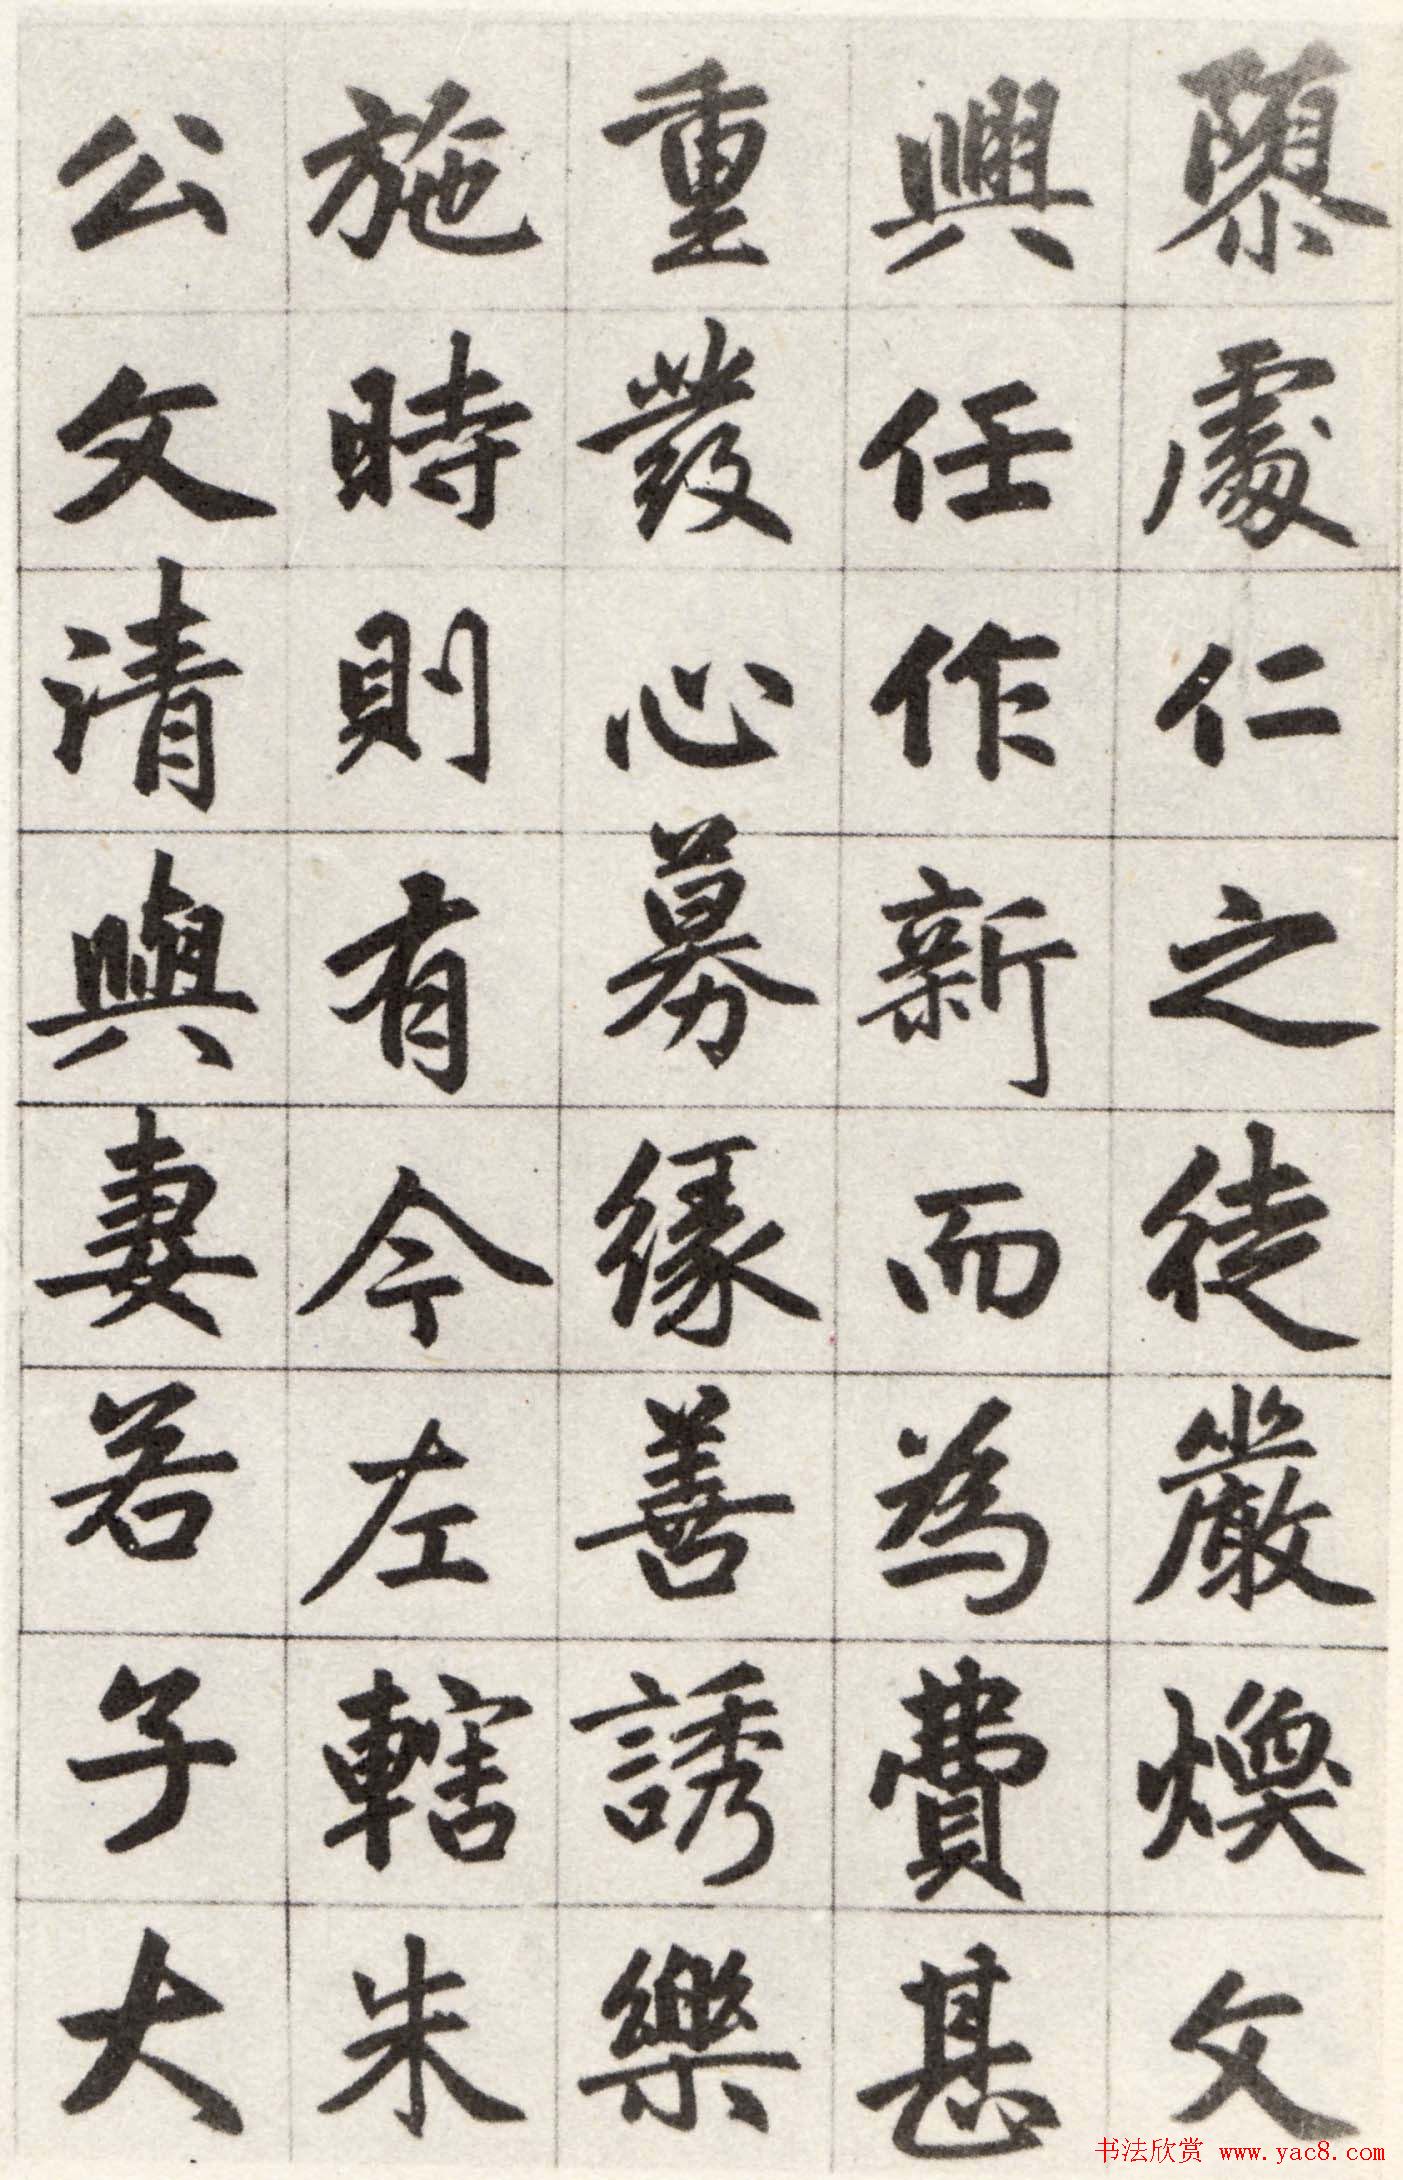 隳處仁之徒嚴煥文
興任作新而為費甚
重發心募緣善誘樂
施時則有今左轄朱
公文清與妻若子大
书法欣赏 www.yac8.com